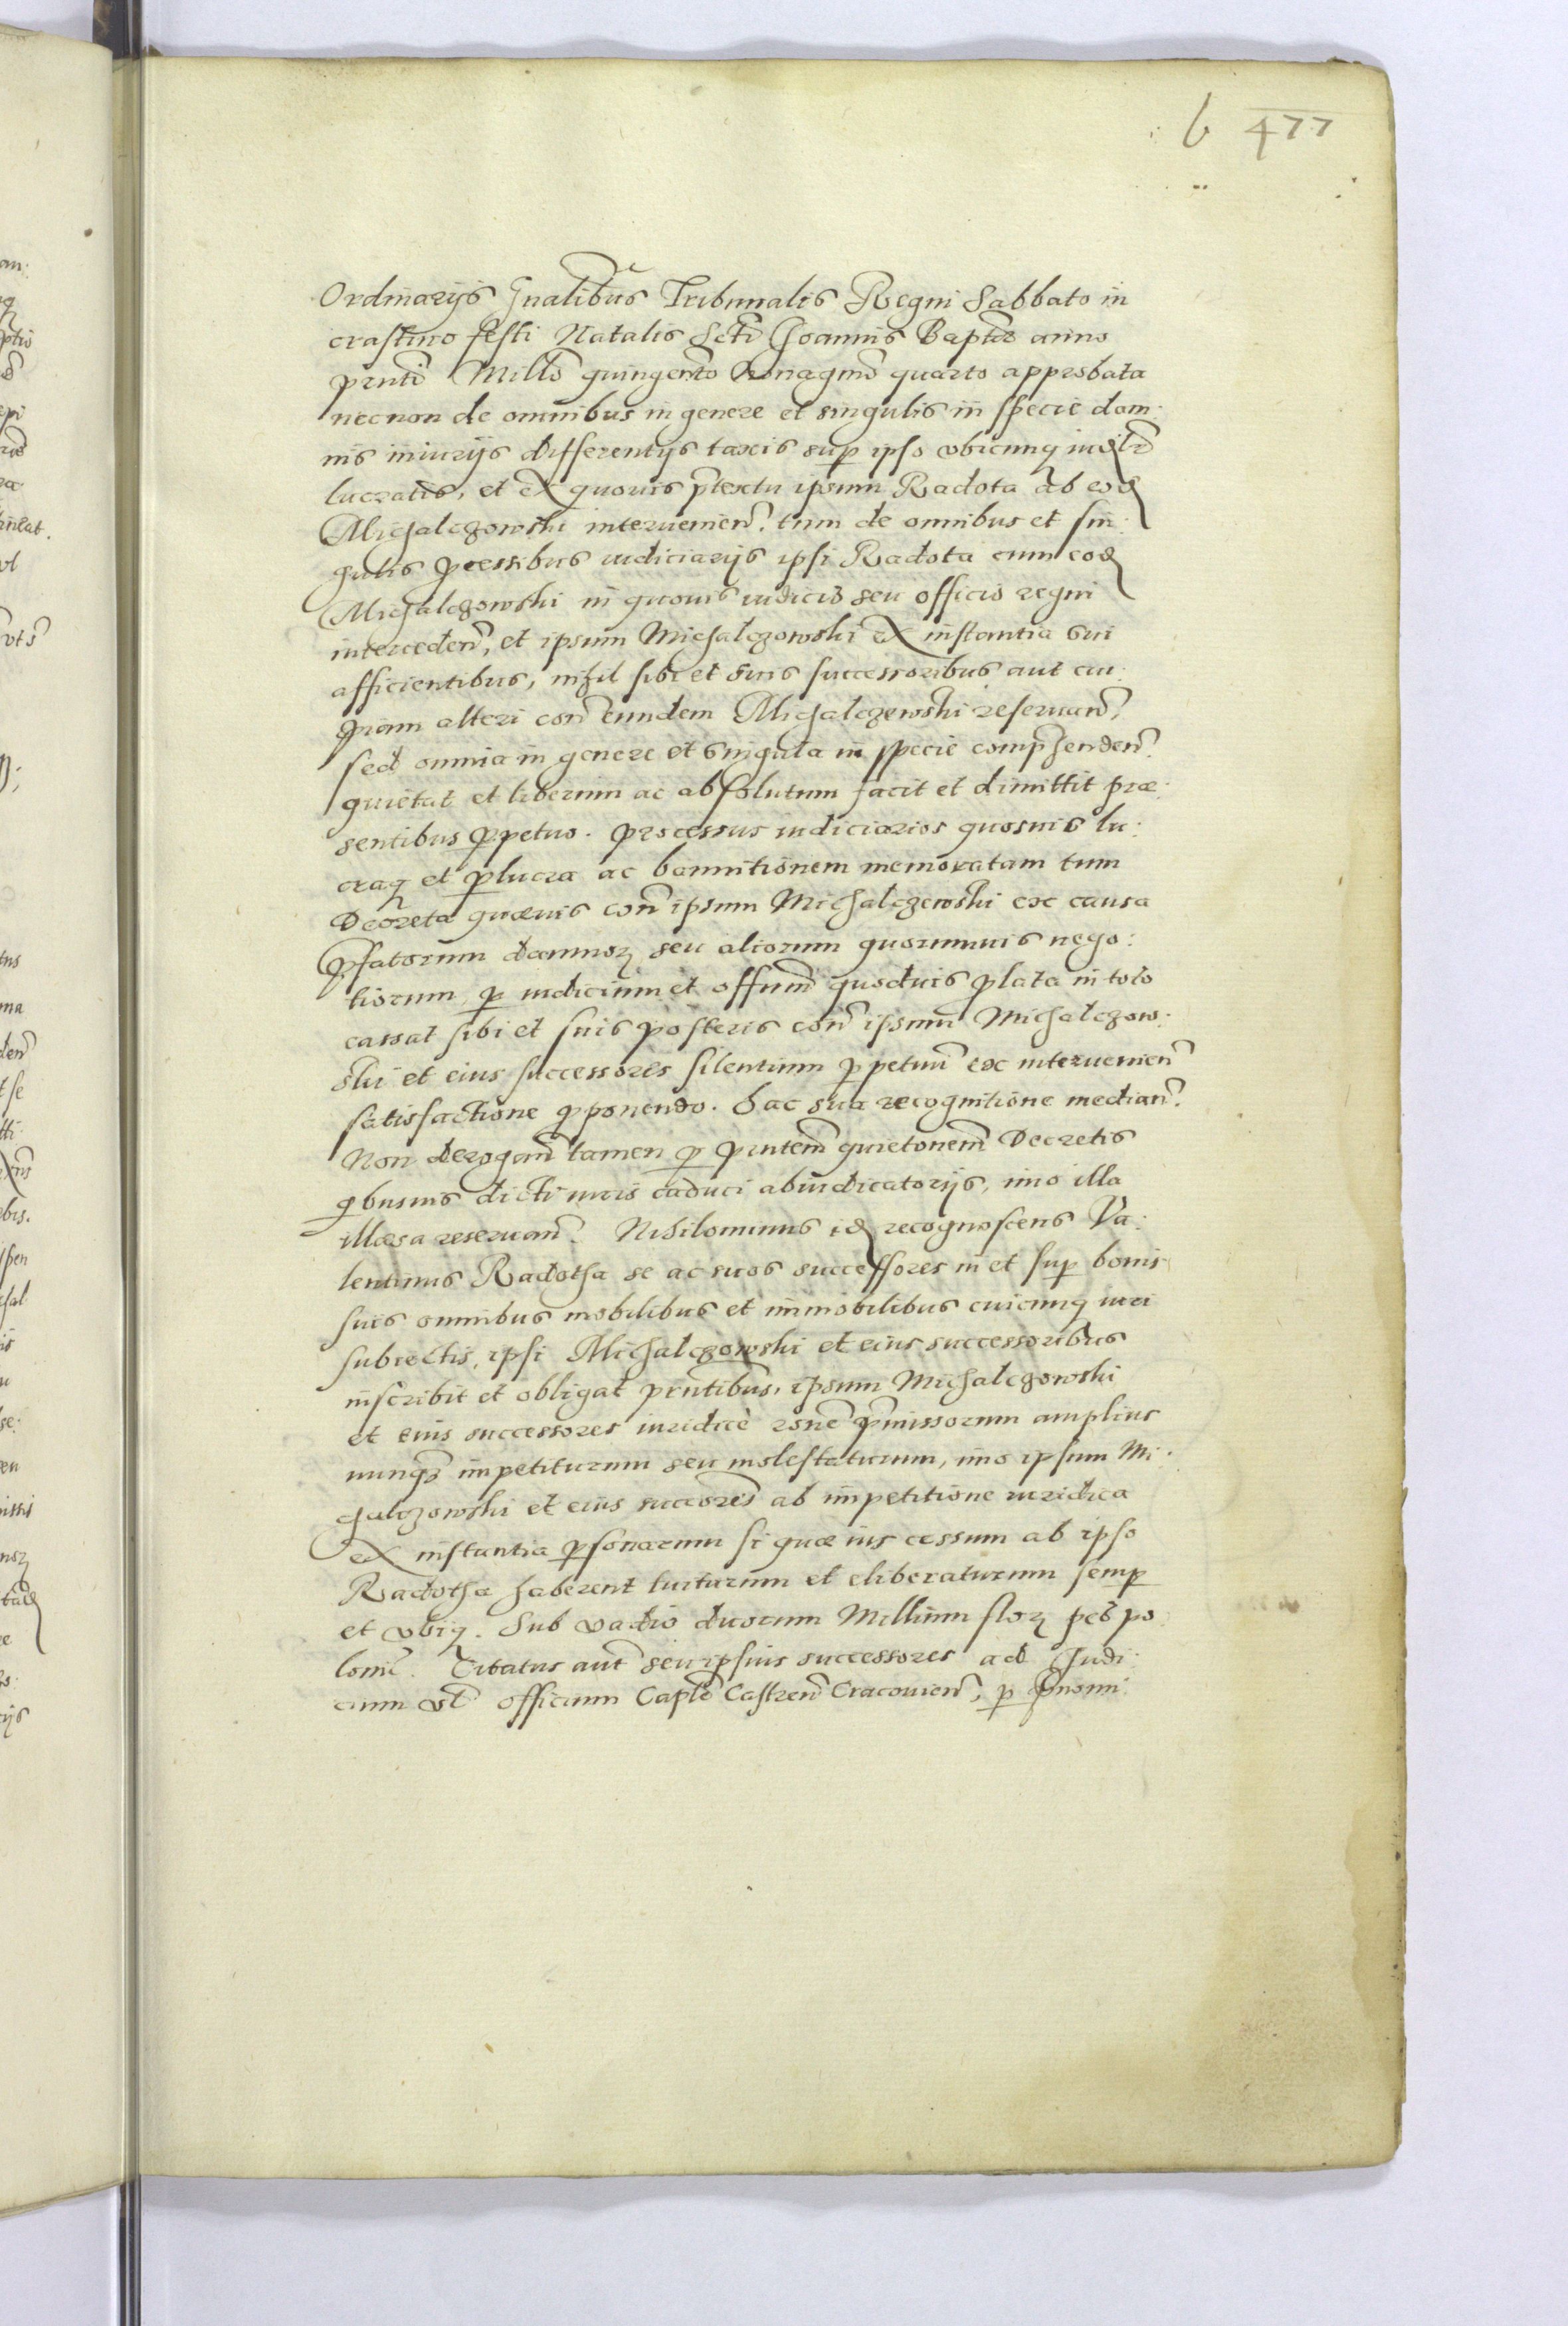 b 477
Ordinarijs Gnalibus Tribunalis Regni Sabbato in
crastino festi Natalis Scti Joannis Baptae anno
pnti Millo quingento Nonagmo quarto approbata
necnon de omnibus in genere et singulis in specie dam:
nis iniurijs differentijs taxis sup ipso vbicunq
lucratis, et ex quouis ptextu ipsum Radota ab eod
Michalczowski interuenien. tum de omnibus et sin:
gulis pcessibus iudiciarijs ipsi Radota cum eod
Michalczowski in quouis iudicio seu officio regni
interceden, et ipsum Michalczowski ex instantia sui
afficientibus, nihil sibi et suis successoribus aut cui:
quam alteri con eundem Michalczewski reseruan,
sed omnia in genere et singula in specie comphenden.
quietat et liberum ac absolutum facit et dimittit præ:
sentibus ppetuo. processus iudiciarios quosuis lu:
craq et plucra ac bannitionem memoratam tum
Decreta quæuis con ipsum Michalczewski ex causa
pfatorum damnor seu aliorum quorumuis nego:
tiorum, p iudicium et offum quoduis plata in toto
cassat sibi et suis posteris con ipsum Michalczow:
ski et eius successores silentium ppetuu ex interuenien
satisfactione pponendo. Hac sua recognitione median.
Non derogan tamen p pntem quietonem Decretis
qbusuis dicti iuris caduci abiudicatorijs, imo illa
illæsa reseruan. Nihilominus id recognoscens Va:
lentinus Radotha se ac suos successores in et sup bonis
suis omnibus mobilibus et immobilibus cuicunq iuri
subiectis, ipsi Michalczowski et eius successoribus
inscribit et obligat pntibus, ipsum Michalczowski
et eius successores iuridicè rone pmissorum amplius
nunq impetiturum seu molestaturum, imo ipsum Mi:
chalczowski et eius succores ab impetitione iuridica
ex instantia psonarum si quæ ius cessum ab ipso
Radotha haberent tuiturum et eliberaturum semp
et vbiq. Sub vadio duorum Millium flor pec po:
loni. Citatus aut seu ipsius successores ad Judi:
cium vel officium Caple Castren Cracouien, p pnomi: